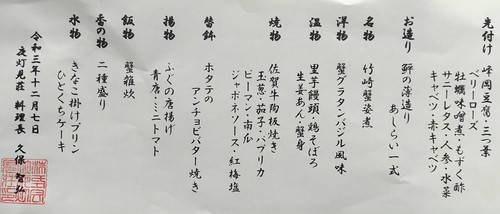 先付け 峰岡豆腐・三つ葉
ベリーローズ
牡蠣味噌煮・もずく酢
サニーレタス・人参・水菜
キャベツ・赤キャベツ
お造り 鮃の薄造り
あしらい一式
名物 竹崎蟹姿煮
洋物 蟹グラタンバジル風味
温物 里芋饅頭・鶏そぼろ
生姜あん・蟹身
焼物 佐賀牛陶板焼き
玉葱・茄子・パプリカ
ピーマン・南瓜
ジャポネソース・紅梅塩
替鉢 ホタテの
アンチョビバター焼き
揚物 ふぐの唐揚げ
青唐・ミニトマト
飯物 蟹雑炊
香の物 二種盛り
水物 きなこ掛けプリン
ひとくちケーキ
令和三年十二月七日
夜灯見荘 料理長 久保 智弘